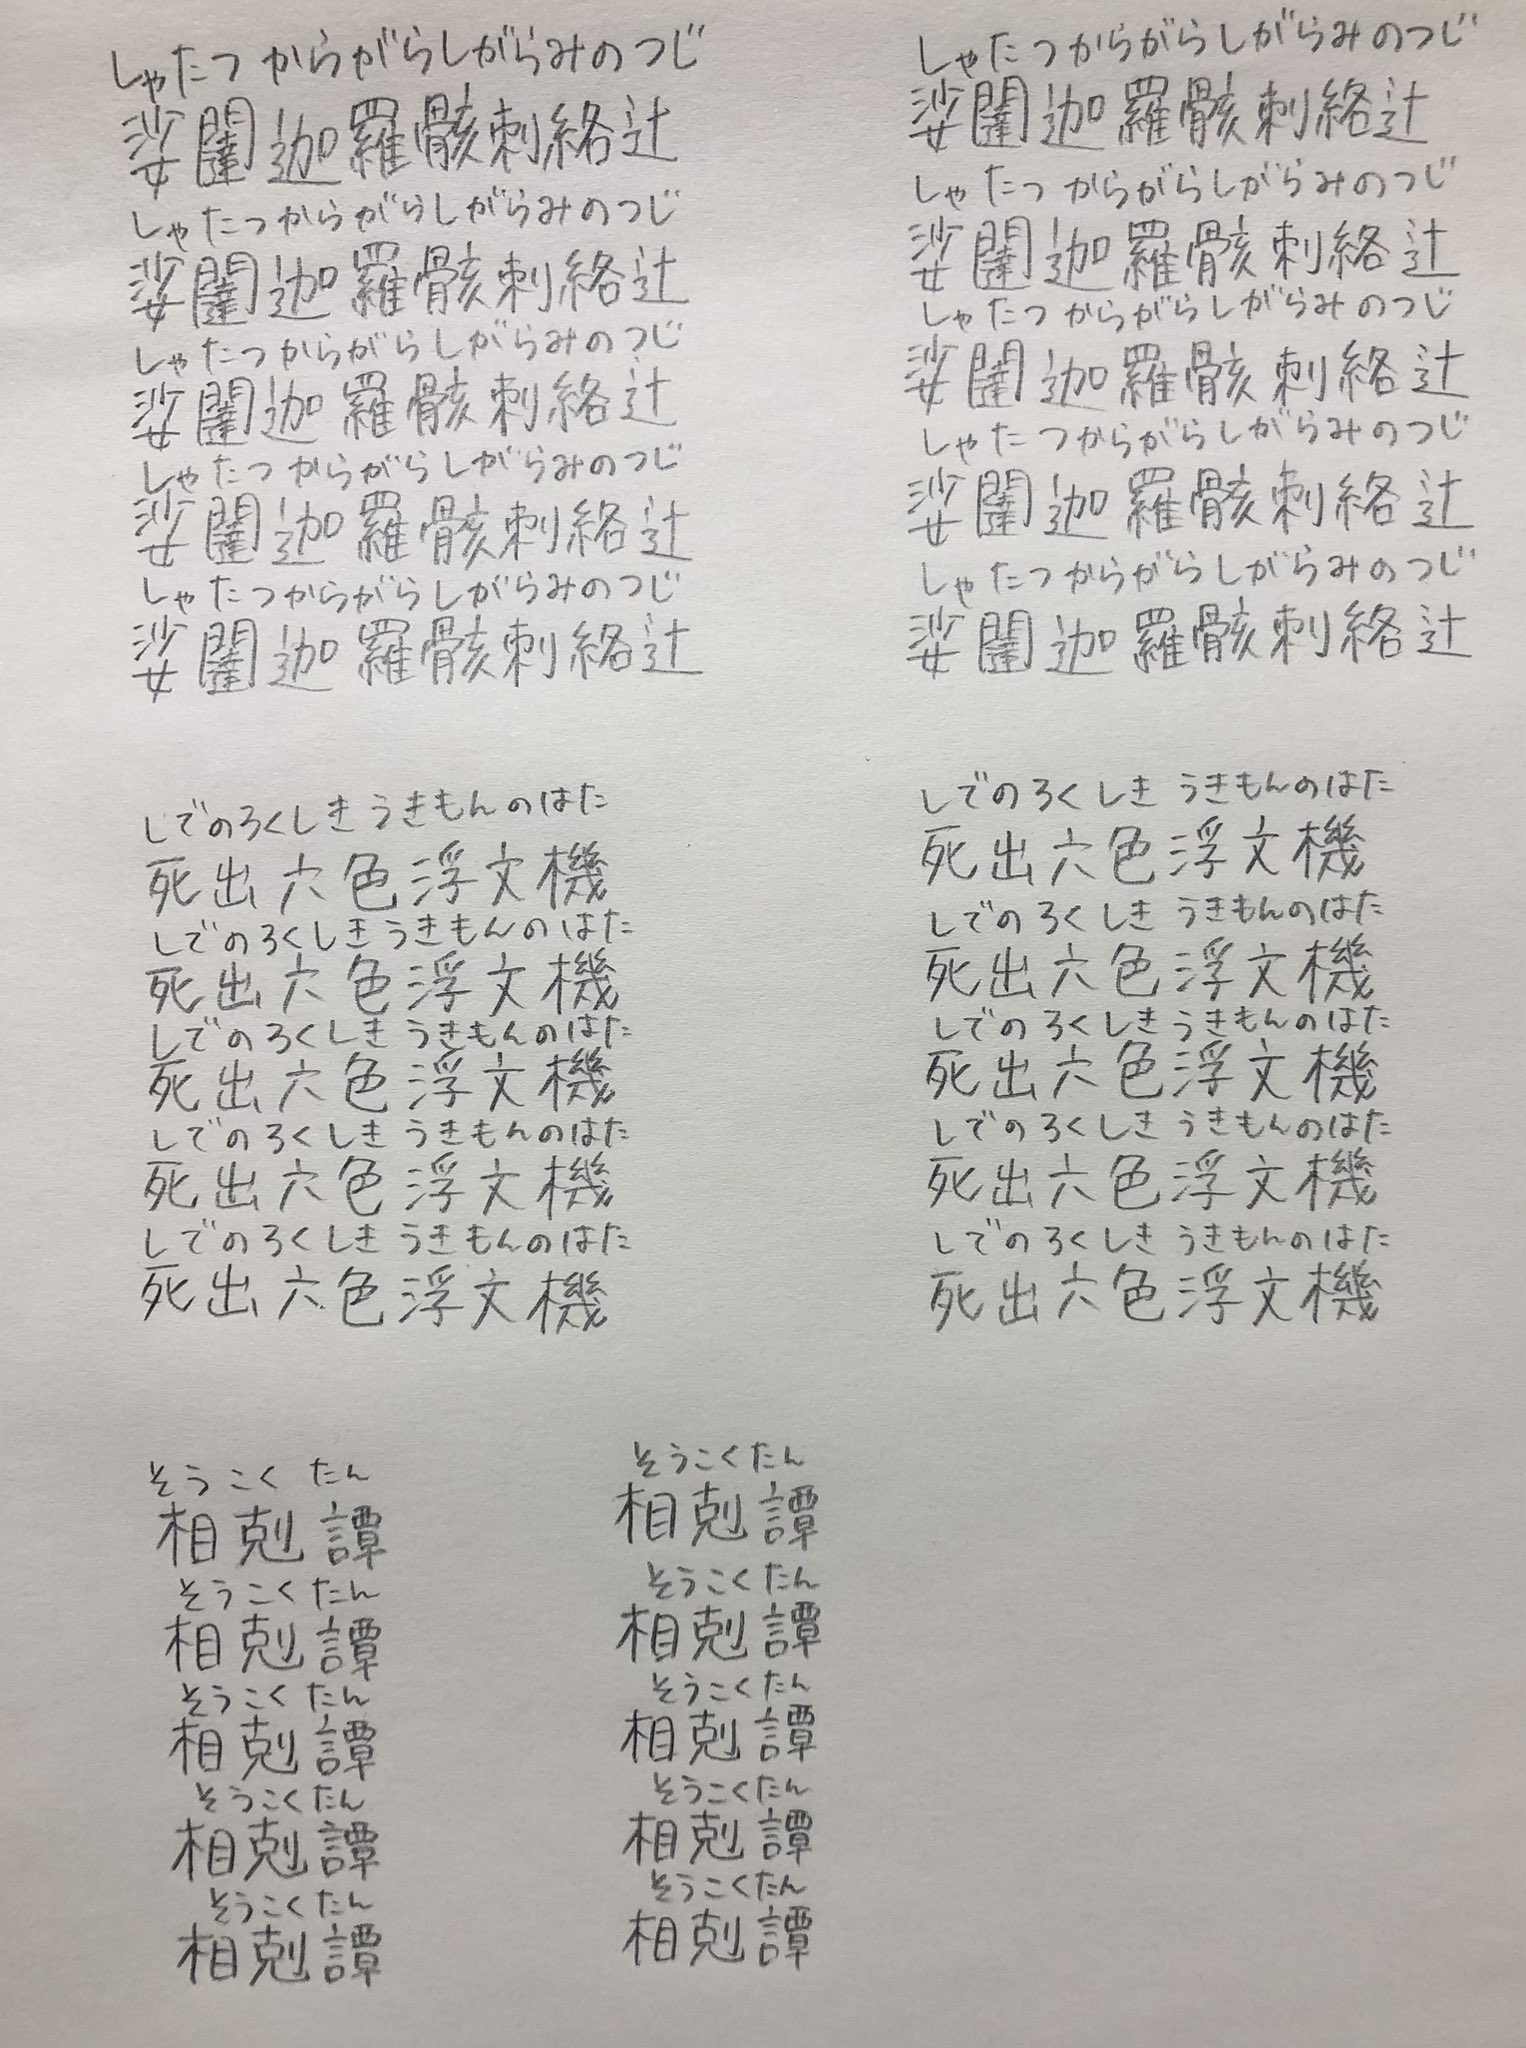 しゃたつ からがらしがらみのつじ
娑闥迦羅骸刺絡辻
しゃたつからがらしがらみのつじ
娑闥迦羅骸刺絡辻
しゃたつからがらしがらみのつじ
娑闥迦羅骸刺絡辻
しゃたつ からがらしがらみのつじ
娑闥迦羅骸刺絡辻
しゃたつからがらしがらみのつじ
娑闥迦羅骸刺絡辻
しゃたつからがらしがらみのつじ
娑闥迦羅骸刺絡辻
しゃたつ からがらしがらみのつじ
娑闥迦羅骸刺絡辻
しゃたつ からがらしがらみのつじ
娑闥迦羅骸刺絡辻
しゃたつからがらしがらみのつじ
娑闥迦羅骸刺絡辻
しゃたつからがらしがらみのつじ
娑闥迦羅骸刺絡辻
しでのろくしき うきもんのはた
死出六色浮文機
しでのろくしき うきもんのはた
死出六色浮文機
しでのろくしき うきもんのはた
死出六色浮文機
しでのろくしき うきもんのはた
死出六色浮文機
しでのろくしき うきもんのはた
死出六色浮文機
しでのろくしき うきもんのはた
死出六色浮文機
しでのろくしき うきもんのはた
死出六色浮文機
しでのろくしき うきもんのはた
死出六色浮文機
しでのろくしき うきもんのはた
死出六色浮文機
しでのろくしき うきもんのはた
死出六色浮文機
そうこくたん
相剋譚
そうこくたん
相剋譚
そうこくたん
相剋譚
そうこくたん
相剋譚
そうこくたん
相剋譚
そうこくたん
相剋譚
そうこくたん
相剋譚
そうこくたん
相剋譚
そうこくたん
相剋譚
そうこくたん
相剋譚